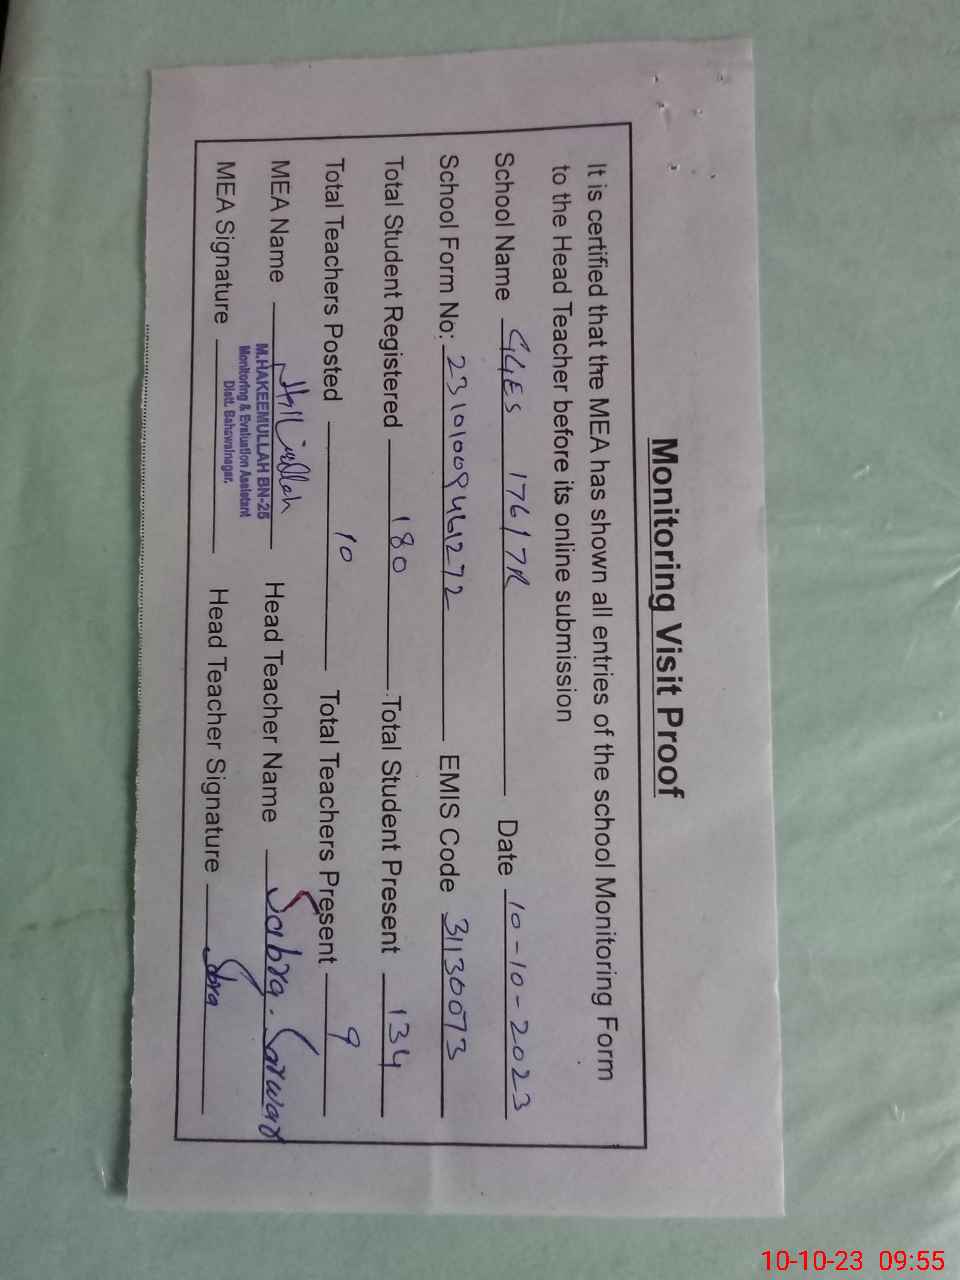 Monitoring Visit Proof
It is certified that the MEA has shown all entries of the school Monitoring Form
to the Head Teacher before its online submission
School Name GGES 176/7R Date 10-10-2023
School Form No: 23101009461272 EMIS Code 31130073
Total Student Registered 180 Total Student Present 134
Total Teachers Posted 10 Total Teachers Present 9
MEA Name Head Teacher Name Sabra. Sarwar
M.HAKEEMULLAH BN-25
Monitoring & Evaluation Assistant
Distt. Bahawalnagar.
MEA Signature Head Teacher Signature Sbra
10-10-23 09:55